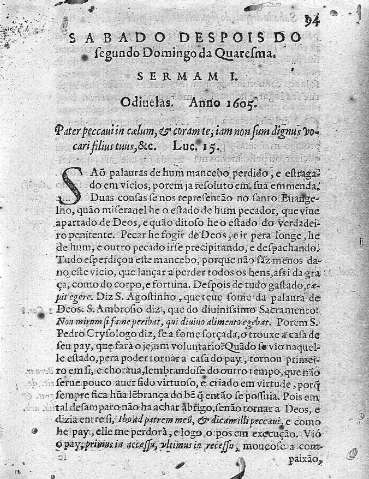 94
SABADO DESPOIS DO
segundo Domingo da Quaresma.
SERMAM I.
Odiuelas. Anno 1605.
Pater peccaui in cælum, & coram te; iam non sum dignus vo-
cari filius tuus, &c. Luc. 15.
SAõ palauras de hum mancebo perdido, e estraga-
do em vicios, porem ja resoluto em sua emmenda.
Duas cousas se nos representão no santo Euange-
lho, quão miserauel he o estado de hum pecador, que viue
apartado de Deos, e quão ditoso he o estado do verdadei-
ro penitente. Pecar he fogir de Deos, e ir pera longe, he
de hum, e outro pecado irse precipitando, e despachando.
Tudo esperdiçou este mancebo, porque não faz menos da-
no este vicio, que lançar a perder todos os bens, assi da gra
ça, como do corpo, e fortuna. Despois de tudo gastado, cæ-
pit egere. Diz S. Agostinho, que teue fome da palaura de
Deos. S. Ambrosio diz, que do diuinissimo Sacramento:
Non mirum si fame peribat, qui diuino alimento egebat. Porem S.
Pedro Crysologo diz, se a fome forçada, o trouxe a casa de
seu pay, que fará o jejum voluntario? Quãdo se vio naquel-
le estado, pera poder tornar a casa do pay, tornou primei-
ro em si, e choraua, lembrandose do outro tempo, que não
serue pouco auer sido virtuoso, e criado em virtude, porq̃
sempre fica hũa lẽbrança do bẽ q̃ entaõ se possuia. Pois em
tal desamparo não ha achar abrigo, senão tornar a Deos, e
dizia entre si, ibo ad patrem meũ, & dicam illi peccaui, e como
he pay, elle me perdorà, e logo o pos em execução. Viò
o pay, primus in accessu, vltimus in recessu, mouçose a com-
paixão,